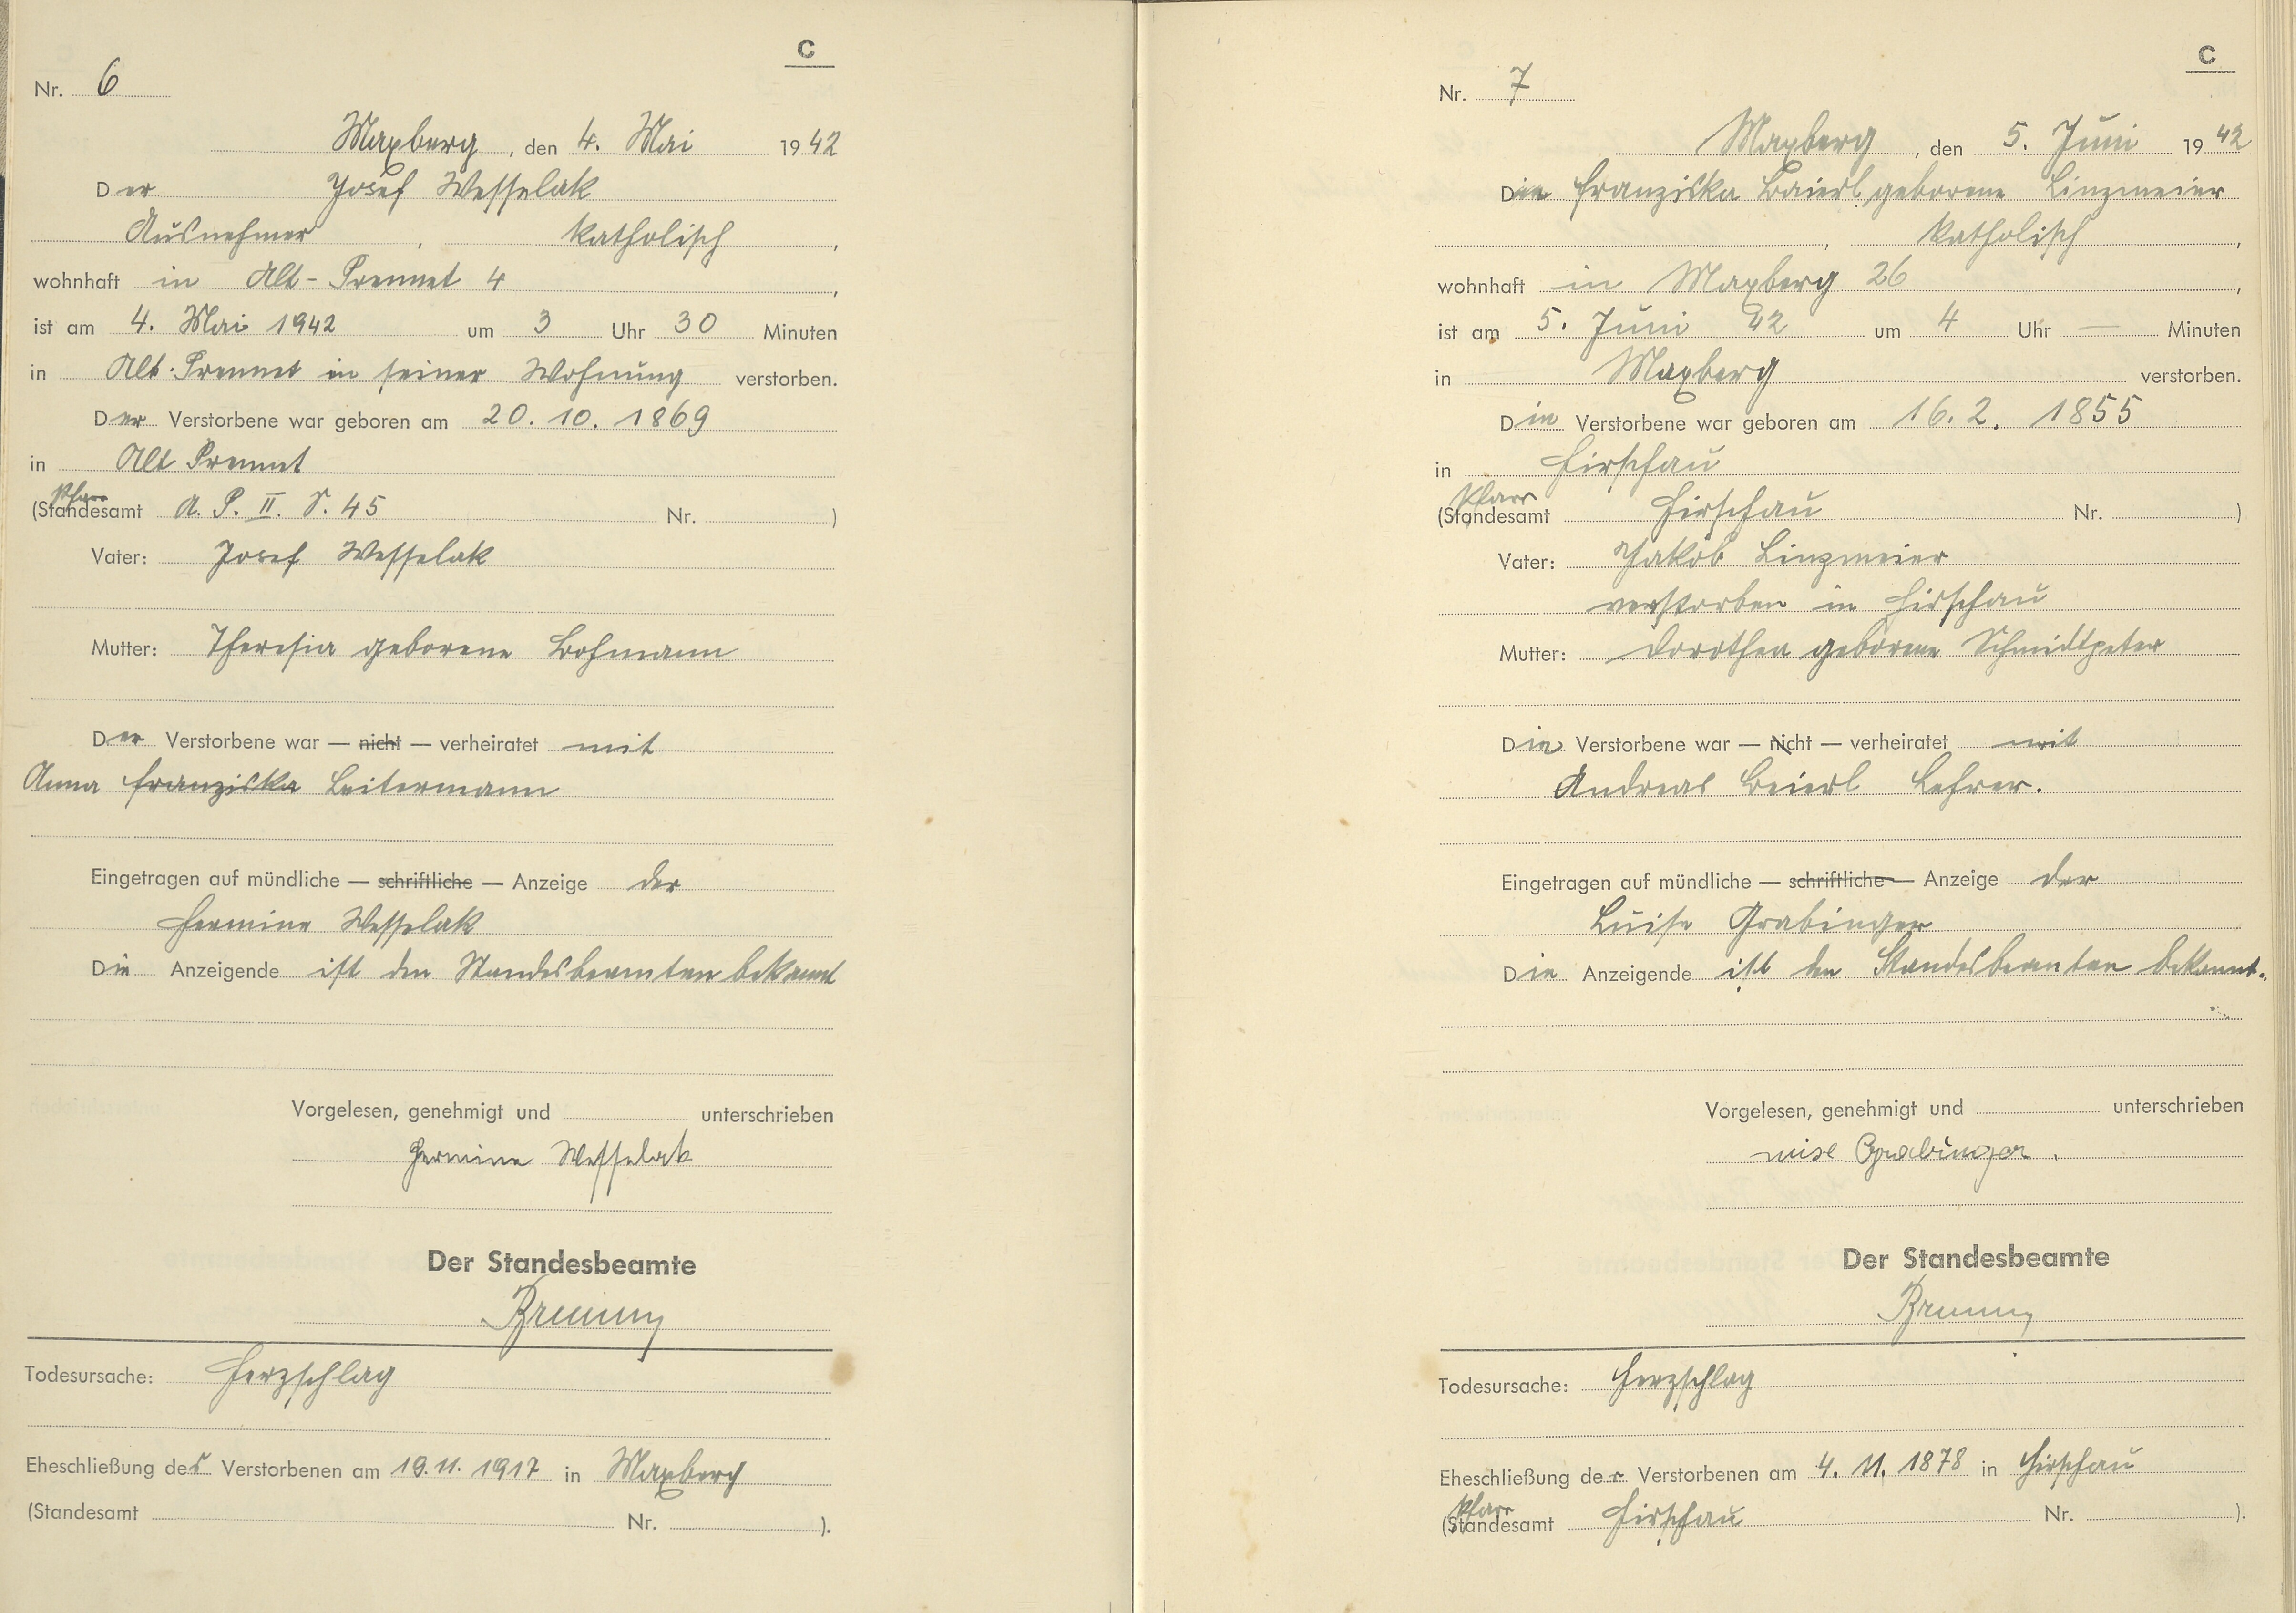 C
Nr. 6
Maxberg, den 4. Mai 1942
Der Josef Wesselak
Ausnehmer, katholisch,
wohnhaft in Alt-Prennet 4,
ist am 4. Mai 1942 um 3 Uhr 30 Minuten
in Alt-Prennet in seiner Wohnung verstorben.
Der Verstorbene war geboren am 20. 10. 1869
in Alt Prennet
Pfarr
(Standesamt A. P. II. S. 45 Nr. )
Vater: Josef Wesselak
Mutter: Theresia geborene Bohmann
Der Verstorbene war — nicht — verheiratet mit
Anna Franziska Leitermann
Eingetragen auf mündliche — schriftliche — Anzeige der
Hermine Wesselak
Die Anzeigende ist den Standesbeamten bekannt
Vorgelesen, genehmigt und unterschrieben
Hermine Wesselak
Der Standesbeamte
Todesursache: Herzschlag
Eheschließung des Verstorbenen am 19. 11. 1917 in Maxberg
(Standesamt Nr. ).
C
Nr. 7
Maxberg, den 5. Juni 1942
Die Franziska Baierl geborene Linzmeier
, katholisch,
wohnhaft in Maxberg 26,
ist am 5. Juni 42 um 4 Uhr — Minuten
in Maxberg verstorben.
Die Verstorbene war geboren am 16. 2. 1855
in Hirschau
Pfarr
(Standesamt Hirschau Nr. )
Vater: Jakob Linzmeier
verstorben in Hirschau
Mutter: Dorothea geborene Schmidtpeter
Die Verstorbene war — nicht — verheiratet mit
Andreas Beierl Lehrer.
Eingetragen auf mündliche — schriftliche — Anzeige der
Luise Grabinger
Die Anzeigende ist den Standesbeamten bekannt.
Vorgelesen, genehmigt und unterschrieben
Grabinger.
Der Standesbeamte
Todesursache: Herzschlag
Eheschließung der Verstorbenen am 4. 11. 1878 in Hirschau
Pfarr
(Standesamt Hirschau Nr. ).